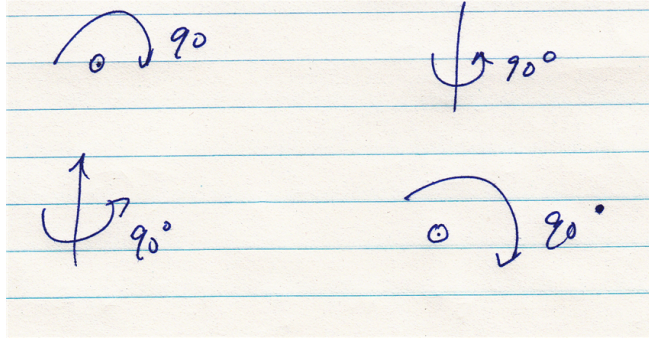 90
90°
90°
90°